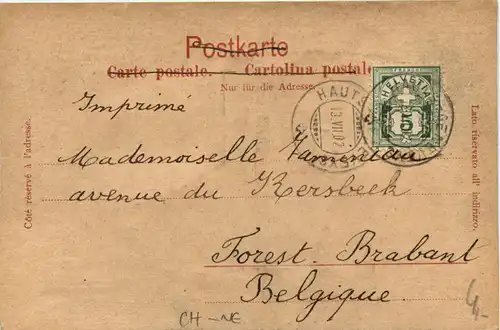 Postkarte
Carte postale. Cartolina postale
Nur für die Adresse.
HELVETIA
FRANCO
5
HAUT
13.VII.02
Imprimé
Mademoiselle
avenue du Kersbeek
Forest. Brabant
Belgique.
Côté réservé à l'adresse.
Lato riservato all' indirizzo.
CH - NE
4,-